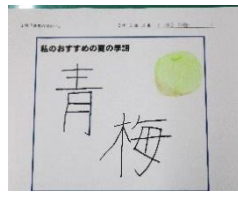 私のおすすめの夏の季語
青梅